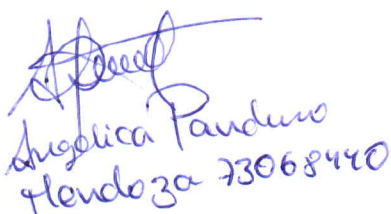 Angelica Panduro
Mendoza 73068440